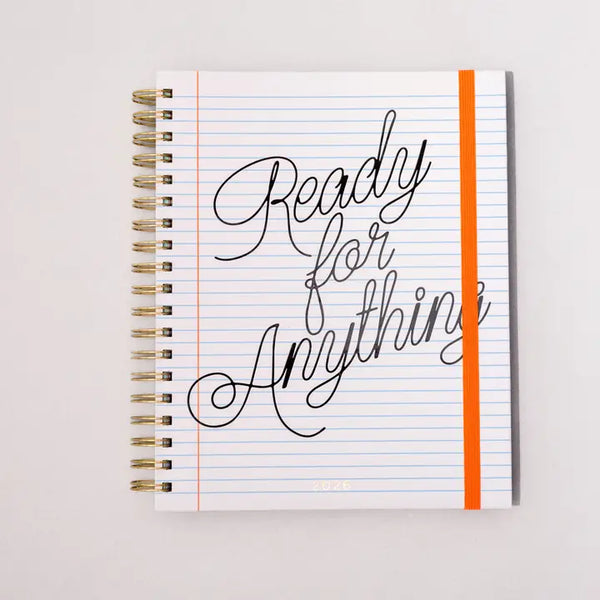 Ready
for
Anything
2026